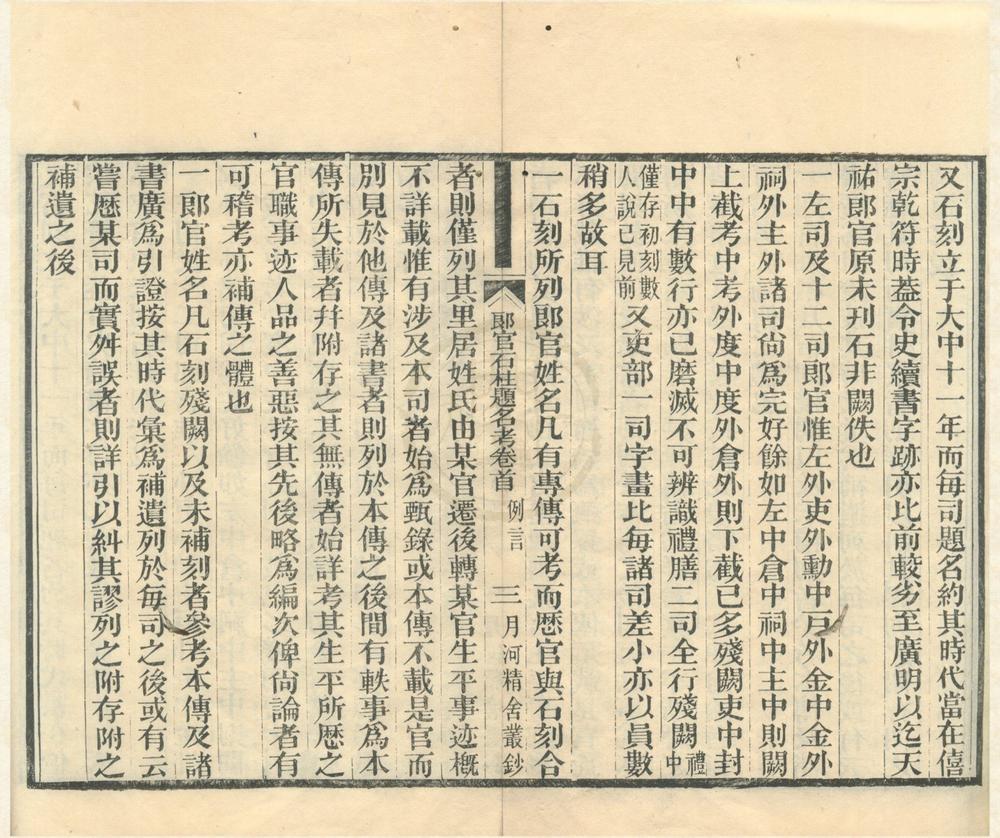 又石刻立于大中十一年而每司題名約其時代當在僖
宗乾符時葢令史續書字跡亦比前較劣至廣明以迄天
祐郎官原未刋石非闕佚也
一左司及十二司郎官惟左外吏外勳中戸外金中金外
祠外主外諸司尙爲完好餘如左中倉中祠中主中則闕
上截考中考外度中度外倉外則下截已多殘闕吏中封
中中有數行亦已磨滅不可辨識禮膳二司全行殘闕禮中
僅存初刻數人說已見前又吏部一司字畫比每諸司差小亦以員數
稍多故耳
郎官石柱題名考卷首 例言 三 月河精舍叢鈔
一石刻所列郎官姓名凡有專傳可考而歷官與石刻合
者則僅列其里居姓氏由某官遷後轉某官生平事迹槪
不詳載惟有涉及本司者始爲甄錄或本傳不載是官而
別見於他傳及諸書者則列於本傳之後間有軼事爲本
傳所失載者幷附存之其無傳者始詳考其生平所歷之
官職事迹人品之善惡按其先後略爲編次俾尙論者有
可稽考亦補傳之體也
一郎官姓名凡石刻殘闕以及未補刻者參考本傳及諸
書廣爲引證按其時代彙爲補遺列於每司之後或有云
嘗歷某司而實舛誤者則詳引以糾其謬列之附存附之
補遺之後